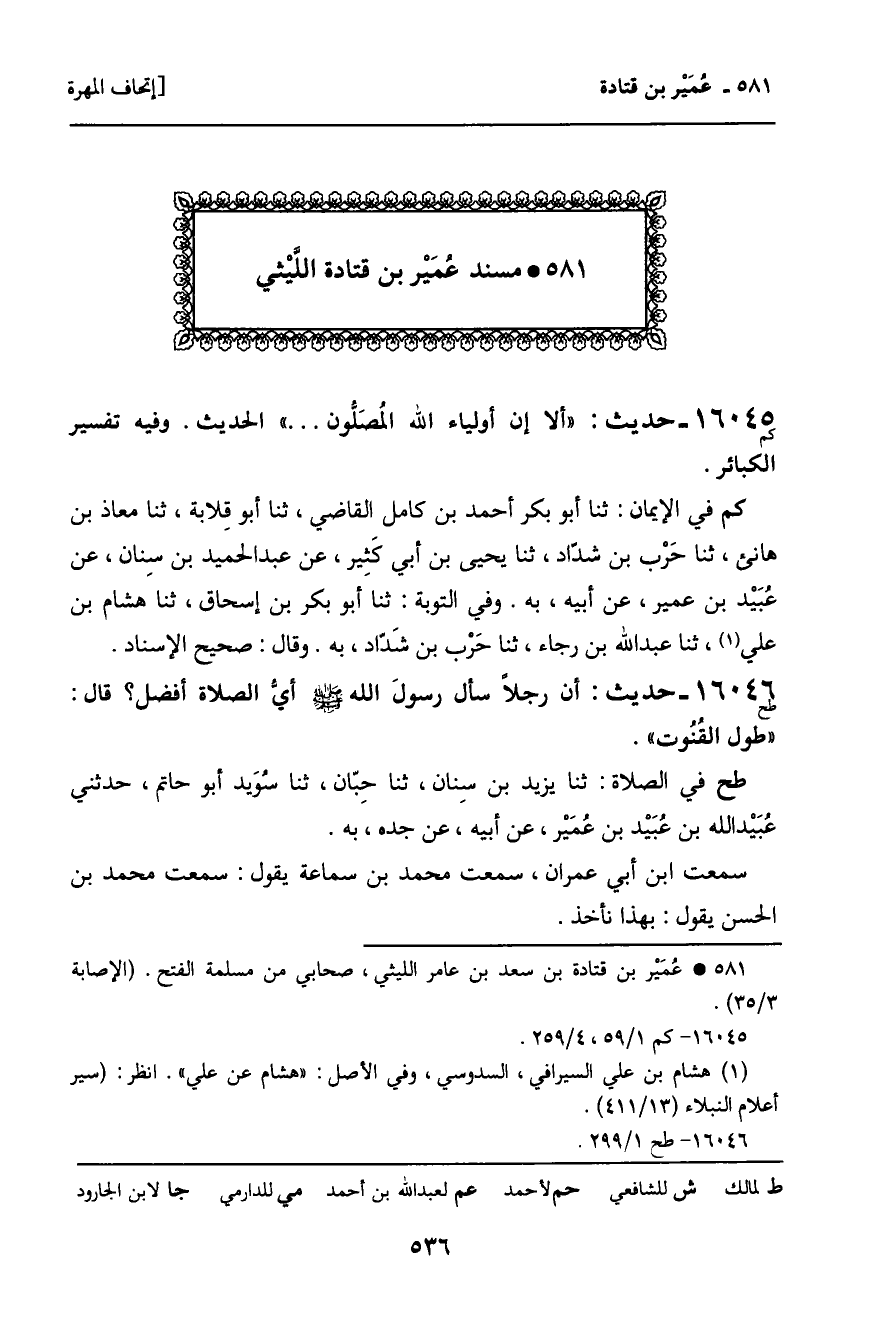 ٥٨١ - عُمَيْر بن قتادة [إتحاف المهرة
٥٨١ • مسند عُمَيْر بن قتادة اللَّيْثي
١٦٠٤٥ - حديث : «ألا إن أولياء الله المُصَلُّون ...» الحديث . وفيه تفسير
كم
الكبائر .
كم في الإيمان : ثنا أبو بكر أحمد بن كامل القاضي ، ثنا أبو قِلابة ، ثنا معاذ بن
هانئ ، ثنا حَرْب بن شدّاد ، ثنا يحيى بن أبي كَثِير ، عن عبدالحميد بن سِنان ، عن
عُبَيْد بن عمير ، عن أبيه ، به . وفي التوبة : ثنا أبو بكر بن إسحاق ، ثنا هشام بن
علي(١) ، ثنا عبدالله بن رجاء ، ثنا حَرْب بن شَدّاد ، به . وقال : صحيح الإسناد .
١٦٠٤٦ - حديث : أن رجلاً سأل رسولَ الله ﷺ أيُّ الصلاة أفضل؟ قال :
طح
«طول القُنُوت» .
طح في الصلاة : ثنا يزيد بن سِنان ، ثنا حِبّان ، ثنا سُوَيد أبو حاتم ، حدثني
عُبَيْدالله بن عُبَيْد بن عُمَيْر ، عن أبيه ، عن جده ، به .
سمعت ابن أبي عمران ، سمعت محمد بن سماعة يقول : سمعت محمد بن
الحسن يقول : بهذا نأخذ .
٥٨١ • عُمَيْر بن قتادة بن سعد بن عامر الليثي ، صحابي من مسلمة الفتح . (الإصابة
٣٥/٣) .
١٦٠٤٥- كم ٥٩/١ ، ٢٥٩/٤ .
(١) هشام بن علي السيرافي ، السدوسي ، وفي الأصل : «هشام عن علي» . انظر : (سير
أعلام النبلاء (٤١١/١٣) .
١٦٠٤٦- طح ٢٩٩/١ .
ط لمالك ش للشافعي حم لأحمد عم لعبدالله بن أحمد مي للدارمي جا لابن الجارود
٥٣٦